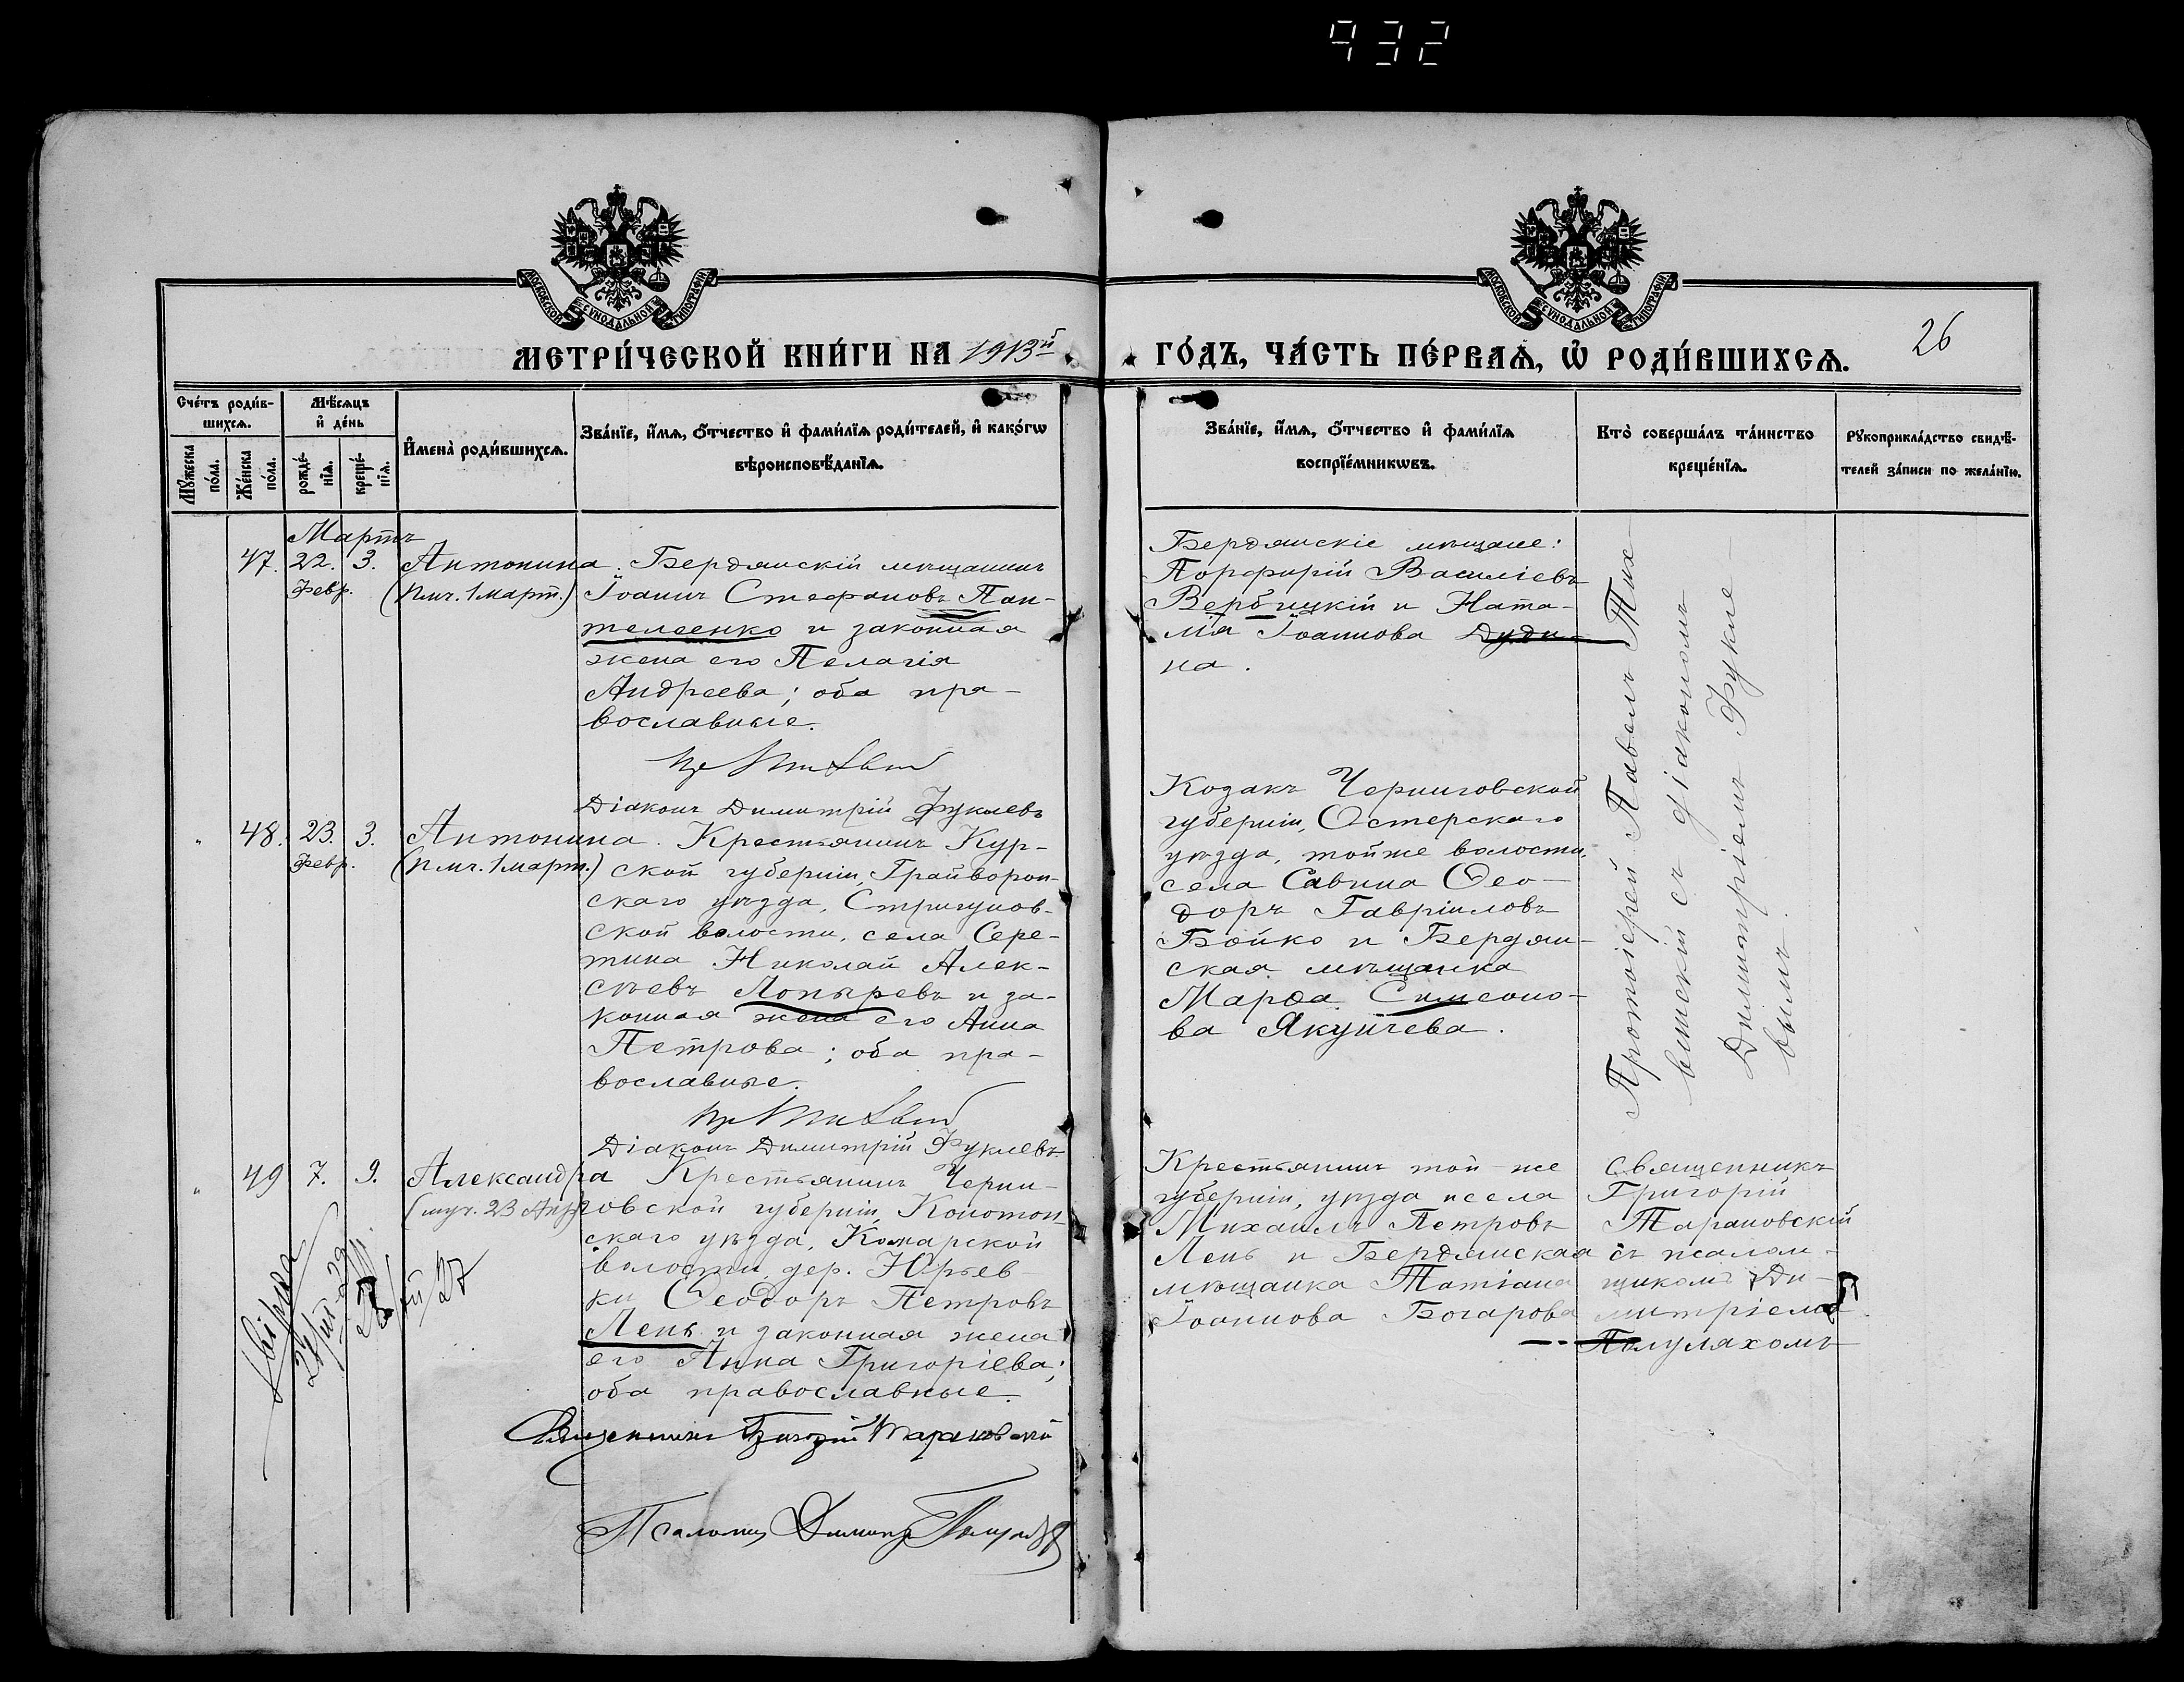 932
МОСКОВСКОЙ СѴНОДАЛЬНОЙ ТИПОГРАФІИ
МОСКОВСКОЙ СѴНОДАЛЬНОЙ ТИПОГРАФІИ
МЕТРИ́ЧЕСКОЙ КНИ́ГИ НА 1913й
ГО́ДЪ, ЧА́СТЬ ПЕ́РВАѦ, Ѡ҆ РОДИ́ВШИХСѦ.
26
Сче́тъ роди́в-
шихсѧ.
Мꙋ́жеска
по́ла.
Же́нска
по́ла.
Мѣ́сѧцъ
и҆ де́нь
рожде́-
нїѧ.
креще́-
нїѧ.
И҆мена̀ роди́вшихсѧ.
Зва́нїе, и҆́мѧ, ѻ҆́тчество и҆ фами́лїѧ роди́телей, и҆ како́гѡ
вѣроисповѣ́данїѧ.
Зва́нїе, и҆́мѧ, ѻ҆́тчество и҆ фами́лїѧ
воспрїе́мникѡвъ.
Кто̀ соверша́лъ та́инство
креще́нїѧ.
Рꙋкоприкла́дство свидѣ́-
телей за́писи по жела́нїю.
Мартъ
47. 22. 3. Антонина.
Февр. (Пмч. 1 март.)
Бердянскій мѣщанинъ
Іоаннъ Стефановъ Пан-
телеенко и законная
жена его Пелагія
Андреева; оба пра-
вославные.
Діаконъ Димитрій Фуклевъ
Бердянскіе мѣщане:
Порфирій Василіевъ
Вербицкій и Ната-
лія Іоаннова Дуди-
на.
Протоіерей Павелъ Тих-
винскій съ діакономъ
Димитріемъ Фукле-
вымъ.
" 48. 23. 3. Антонина.
Февр. (Пмч. 1 март.)
Крестьянинъ Кур-
ской губерніи, Грайворон-
скаго уѣзда, Стригунов-
ской волости, села Сере-
тина Николай Алек-
сѣевъ Лопыревъ и за-
конная жена его Анна
Петрова; оба пра-
вославные.
Діаконъ Димитрій Фуклевъ
Козакъ Черниговской
губерніи, Остерскаго
уѣзда, той же волости,
села Савина Ѳео-
доръ Гавріиловъ
Бойко и Бердян-
ская мѣщанка
Марѳа Симеоно-
ва Якунчева.
" 49 7. 9. Александра
(муч. 23 Апр.)
Крестьянинъ Черни-
говской губерніи, Конотоп-
скаго уѣзда, Комарской
волости, дер. Юрьев-
ки Ѳеодоръ Петровъ
Лень и законная жена
его Анна Григоріева;
оба православные.
Священникъ Григорій Тарановскій
Псаломщ. Димитр.
Крестьянинъ той-же
губерніи, уѣзда и села
Михаилъ Петровъ
Лень и Бердянская
мѣщанка Татіана
Іоаннова Богарова
Священникъ
Григорій
Тарановскій
съ псалом-
щикомъ Ди-
митріемъ
Полуляхомъ
27